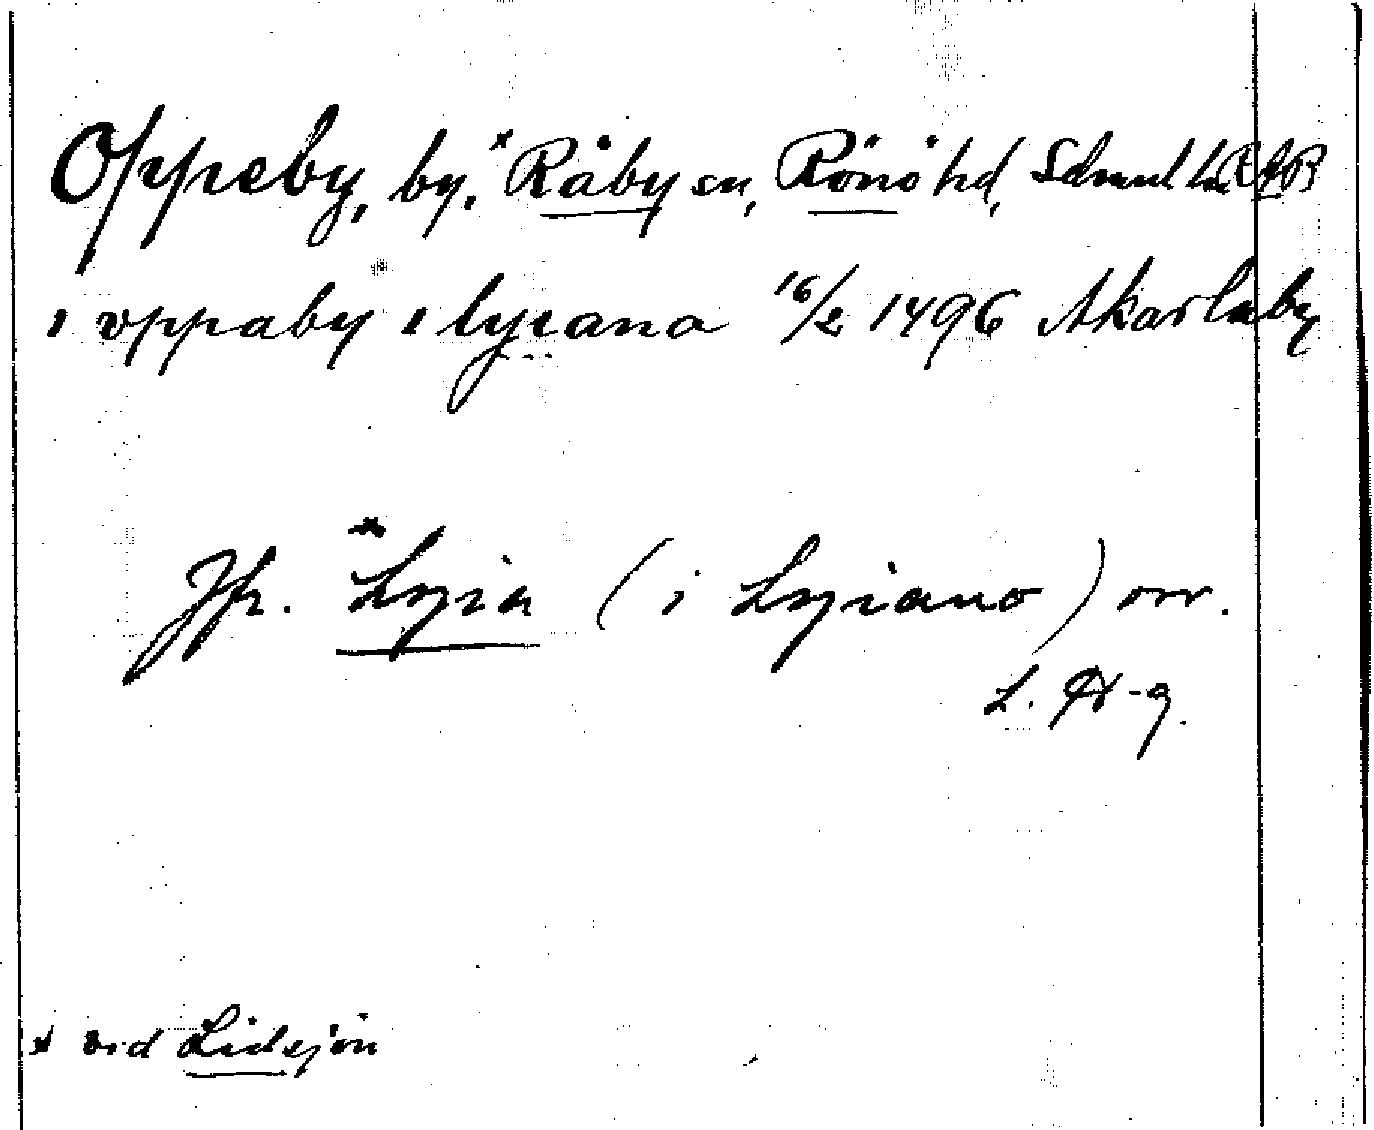 Oppeby, by, *Råby sn, Rönö hd, Sdmnl län RAP
i oppaby i lyiano 16/2 1496 Akarlaby
Jfr. *Lyia (i Lyiano) orr.
L. H-g.
* vid Lidsjön